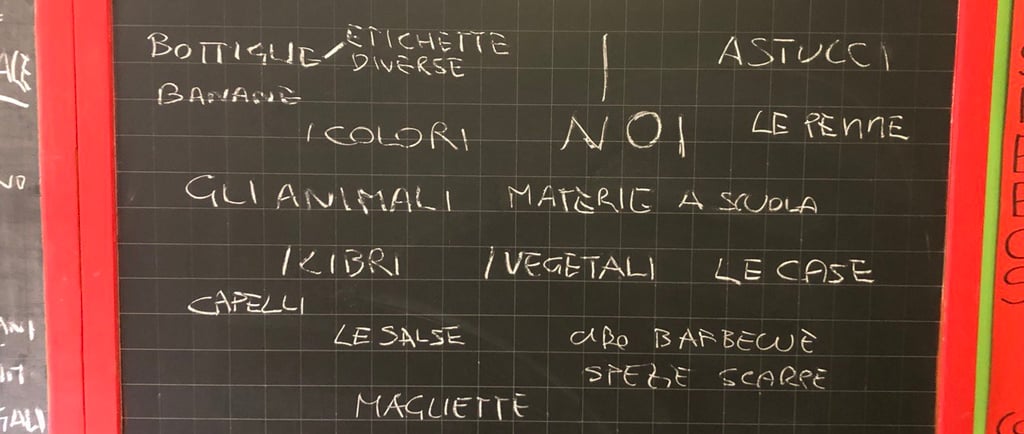 BOTTIGLIE / ETICHETTE DIVERSE
ASTUCCI
BANANE
I COLORI
NOI
LE PENNE
GLI ANIMALI
MATERIE A SCUOLA
I LIBRI
I VEGETALI
LE CASE
CAPELLI
LE SALSE
BARBECUE
SPEZIE SCARPE
MAGLIETTE